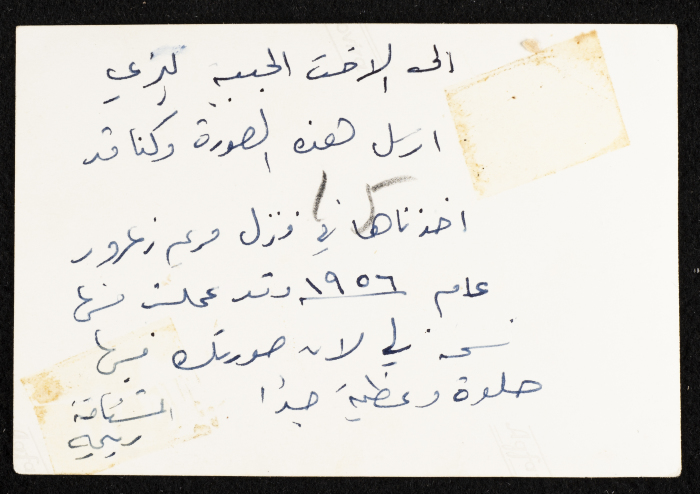 الى الاخت الحبيبة ليزي
ارسل هذه الصورة وكنا قد
15
اخذناها في منزل مريم زعرور
عام ١٩٥٦ وقد عملت منها
نسخة لي لان صورتك فيها
حلوة وعظيمة جدًا
المشتاقة